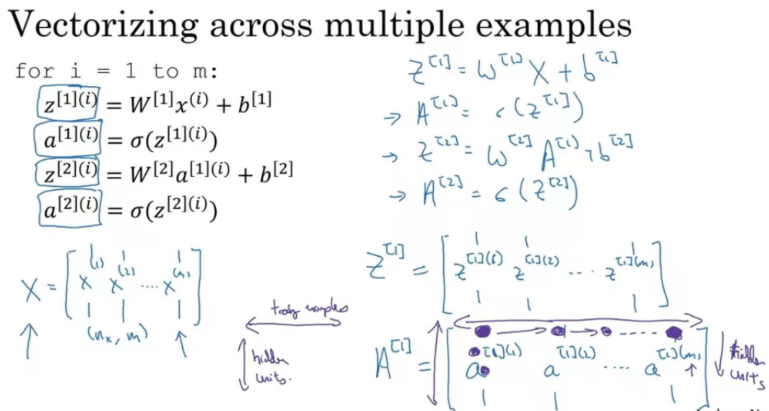 Vectorizing across multiple examples
for i = 1 to m:
z[1](i) = W[1]x(i) + b[1]
a[1](i) = σ(z[1](i))
z[2](i) = W[2]a[1](i) + b[2]
a[2](i) = σ(z[2](i))
Z[1] = W[1] X + b[1]
→ A[1] = σ(Z[1])
→ Z[2] = W[2] A[1] + b[2]
→ A[2] = σ(Z[2])
X = [x(1) x(2) .... x(m)]
(nx, m)
training examples
hidden units.
Z[1] = [z[1](1) z[1](2) ... z[1](m)]
A[1] = [a[1](1) a[1](2) .... a[1](m)]
hidden units